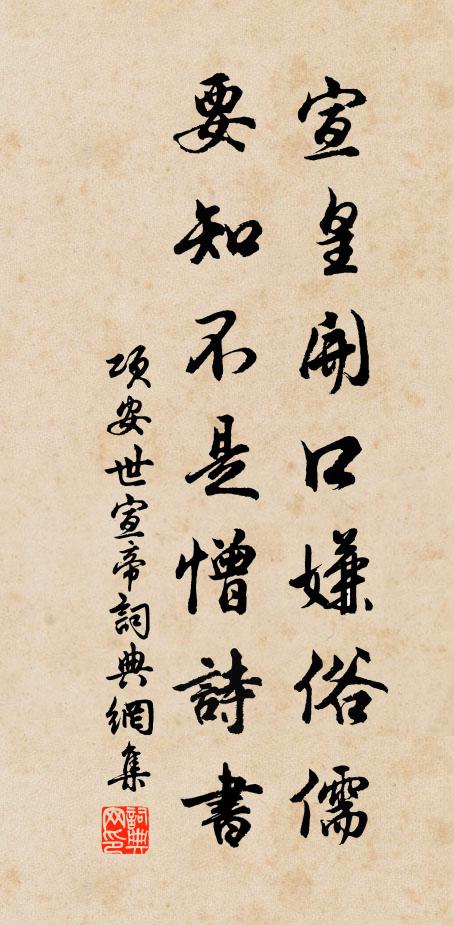 宣皇開口嫌俗儒
要知不是憎詩書
項安世宣帝詞典網集
詞典網印